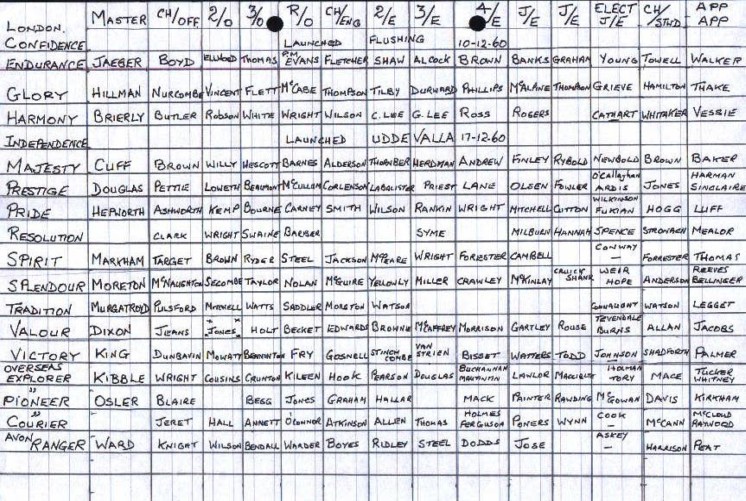 LONDON. MASTER CH/OFF 2/O 3/O R/O CH/ENG 2/E 3/E 4/E J/E J/E ELECT J/E CH/STWD APP APP
CONFIDENCE LAUNCHED FLUSHING 10-12-60
ENDURANCE JAEGER BOYD ELLWOOD THOMAS P.M. EVANS FLETCHER SHAW ALCOCK BROWN BANKS GRAHAM YOUNG TOWELL WALKER
GLORY HILLMAN NURCOMBE VINCENT FLETT McCABE THOMPSON TILBY DURWARD PHILLIPS McALPINE THOMPSON GRIEVE HAMILTON THAKE
HARMONY BRIERLY BUTLER ROBSON WHITE WRIGHT WILSON C.LEE G.LEE ROSS ROGERS CATHART WHITAKER VESSIE
INDEPENDENCE LAUNCHED UDDEVALLA 17-12-60
MAJESTY CUFF BROWN WILLY HESCOTT BARNES ALDERSON THORNBER HERDMAN ANDREW FINLEY RYBOLD NEWBOLD BROWN BAKER
PRESTIGE DOUGLAS PETTIE LOWETH BEAUMONT McCULLUM CORLENSON LABOLISTER PRIEST LANE OLSEN FOWLER O'CALLAGHAN ARDIS JONES HARMAN SINCLAIRE
PRIDE HEPWORTH ASHWORTH KEMP BOURNE CARNEY SMITH WILSON RANKIN WRIGHT MITCHELL CUTTON WILKINSON FUKIAN HOGG LUFF
RESOLUTION CLARK WRIGHT SWAINE BARBER SYME MILBURN HANNAH SPENCE STRONACH MEALOR
SPIRIT MARKHAM TARGET BROWN RYDER STEEL JACKSON McPEAKE WRIGHT FORRESTER CAMBELL CONWAY — FORRESTER THOMAS
SPLENDOUR MORETON McNAUGHTON SECOMBE TAYLOR NOLAN McGUIRE YELLOWLY MILLER CRAWLEY McKINLAY CRUICKSHANK WEIR HOPE ANDERSON REEVES BELLINGER
TRADITION MURGATROYD PULSFORD MITCHELL WATTS SADDLER MORETON WATSON CONNAUGHT WATSON LEGGET
VALOUR DIXON JEANS "JONES" HOLT BECKET EDWARDS BROWNE McCAFFREY MORRISON GARTLEY ROUSE TEVENDALE BURNS ALLAN JACOBS
VICTORY KING DUNBAVIN MOWATT BEDDINGTON FRY GOSNELL STINCHCOMBE VAN STRIEN BISSET WATTERS TODD JOHNSON SHADFORTH PALMER
OVERSEAS EXPLORER KIBBLE WRIGHT COUSINS CRUNTON KILEEN HOOK PEARSON DOUGLAS BUCHANNAN LAWLOR HOLMAN TORY MACE TUCKER WHITNEY
" PIONEER OSLER BLAIRE BEGG JONES GRAHAM HALLAR MACK PAINTER RAWDING McGOWAN DAVIS KIRKHAM
" COURIER JERET HALL ANNETT O'CONNOR ATKINSON ALLEN THOMAS HOLMES FERGUSON POWERS WYNN COOK — McCANN McCLOUD RAYWOOD
AVON RANGER WARD KNIGHT WILSON BENDALL WARDER BOYES RIDLEY STEEL DODDS JOSE ASKEY — HARRISON PEAT